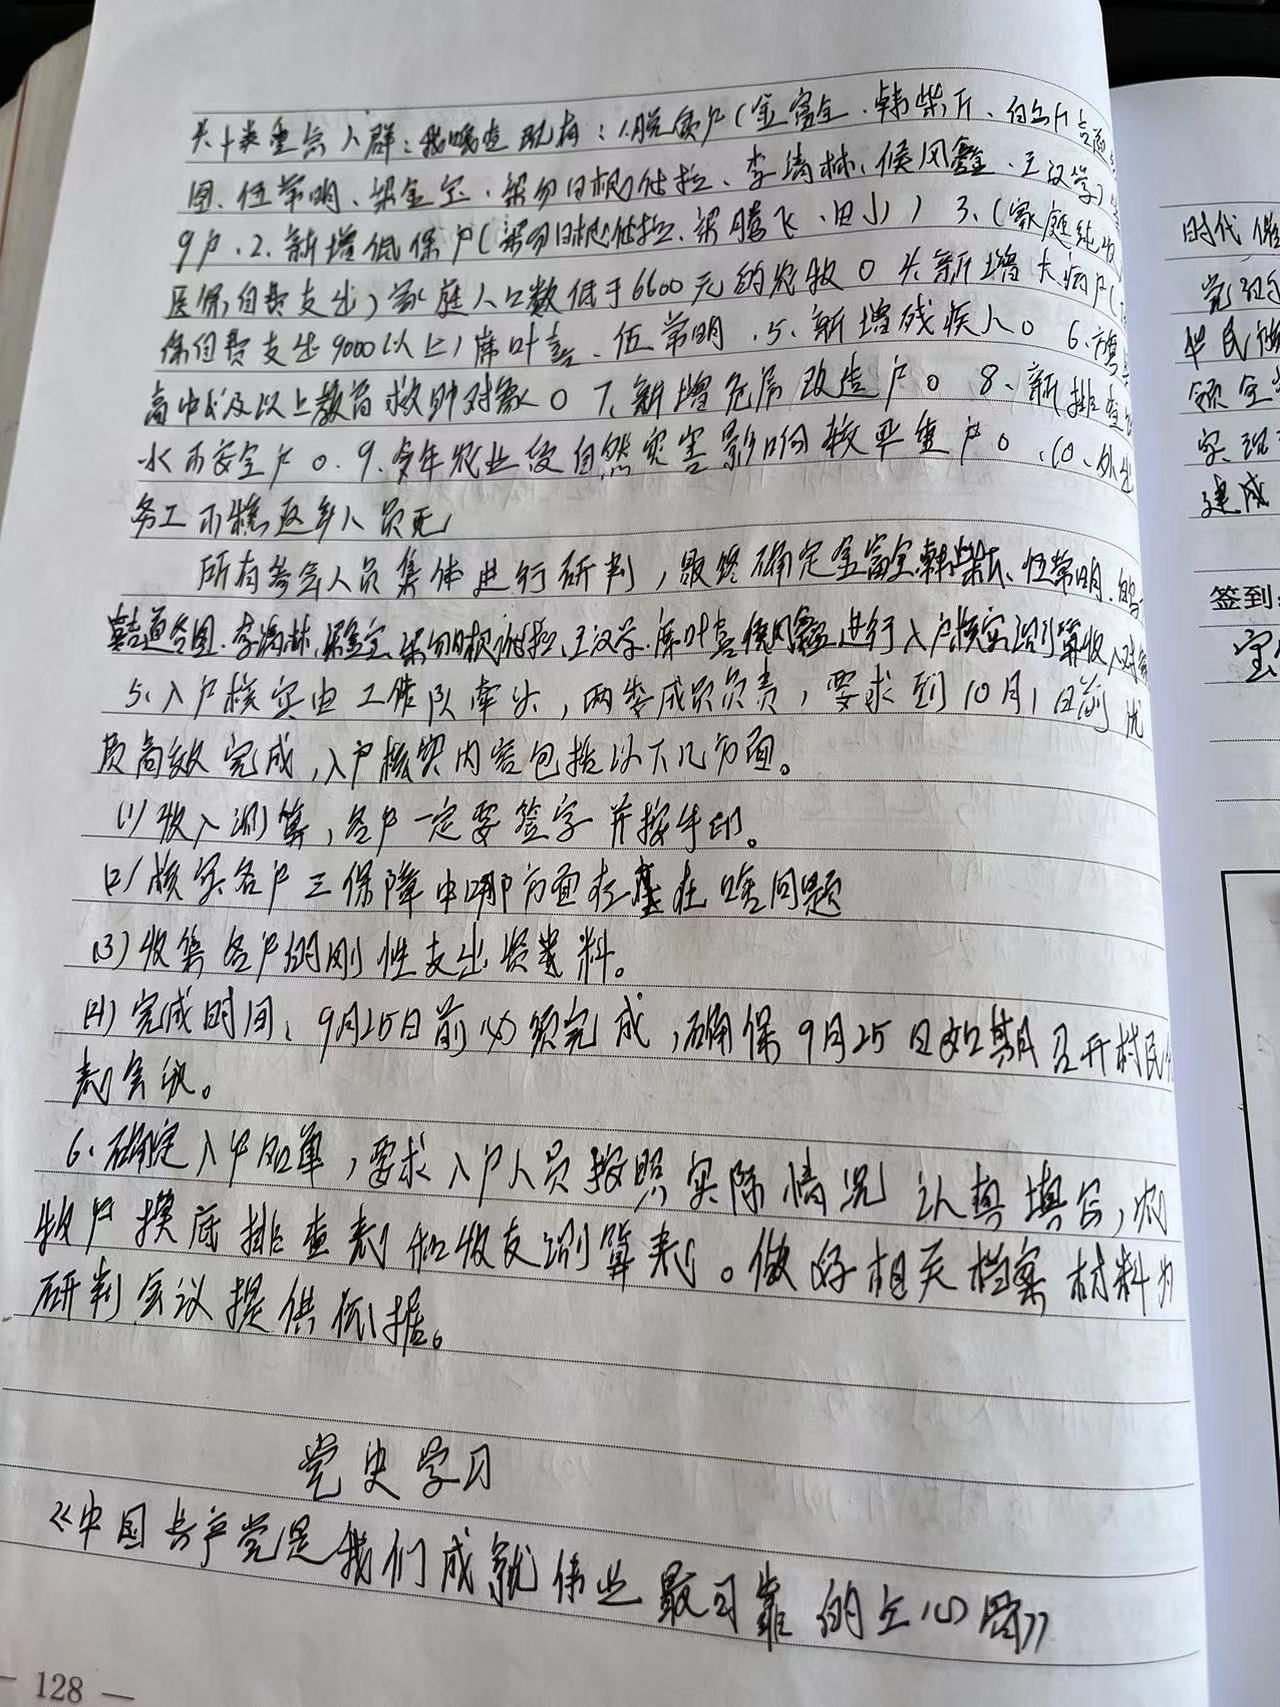 十类重点人群：我嘎查现有：1.脱贫户（金富全、韩柴斤、白乌
图、伍常明、梁金宝、梁勿日根付拉、李涛林、候凤鑫、王汉学）
9户.2.新增低保户（梁勿日根付拉、梁腾飞、田小）3、（家庭纯收
医保自费支出）家庭人口数低于6600元的农牧0 4.新增大病户（
保自费支出9000以上）席叶喜、伍常明.5、新增残疾人0 6、
高中以及以上教育救助对象0 7、新增危房改造户0 8、新排查
水不安全户0.9、今年农业受自然灾害影响较严重户0、10、外出
务工不稳返乡人员无
所有参会人员集体进行研判，最终确定金富全、韩柴斤、伍常明、白乌
喜、道合图、李涛林、梁金宝、梁勿日根付拉、王汉学、席叶喜、候凤鑫进行入户核实测算收入
5、入户核实由工作队牵头，两委成员负责，要求到10月1日前优
质高效完成，入户核实内容包括以下几方面。
(1)收入测算，各户一定要签字并按手印。
(2)核实各户三保障中哪方面存在啥问题
(3)收集各户的刚性支出资料。
(4)完成时间、9月25日前必须完成，确保9月25日如期召开村民代
表会议。
6、确定入户名单，要求入户人员按照实际情况认真填写，农
牧户摸底排查表和收支测算表。做好相关档案材料为
研判会议提供依据。
党史学习
《中国共产党是我们成就伟业最可靠的主心骨》
128
时代
党的
华民
领全
实现
建成
签到:
宝